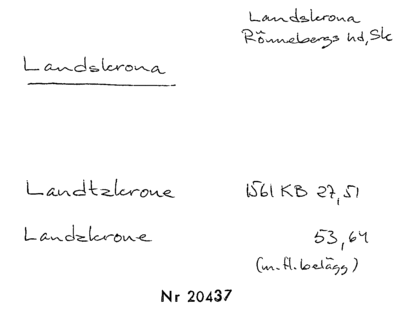 Landskrona
Rönnebergs hd, Sk
Landskrona
Landtzkrone 1561 KB 27, 51
Landzkrone 53, 64
(m.fl. belägg)
Nr 20437